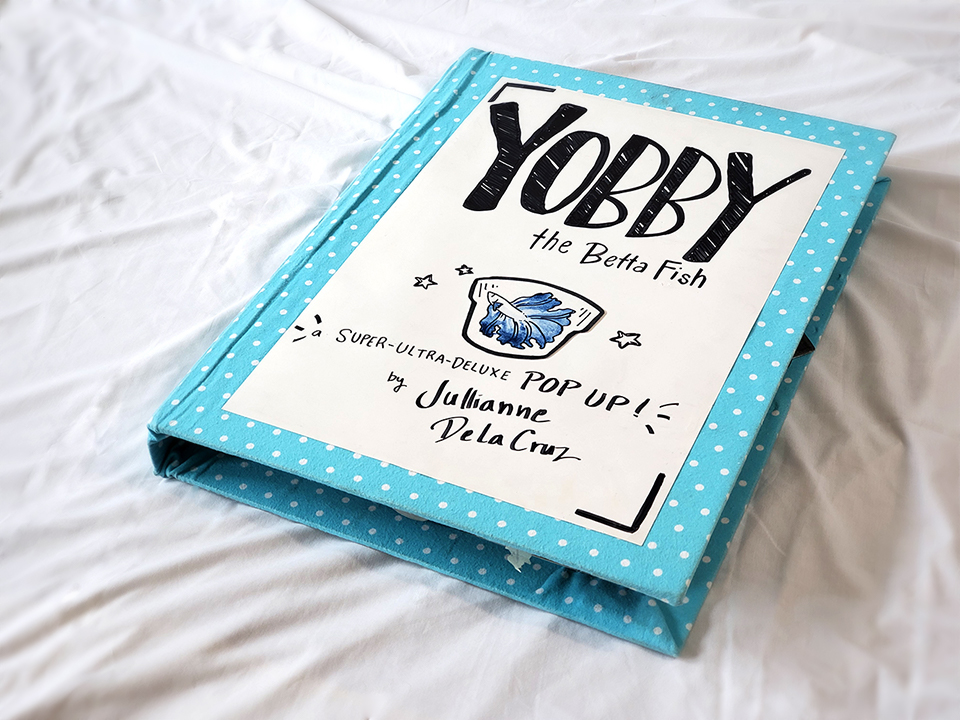 YOBBY
the Betta Fish
a SUPER-ULTRA-DELUXE POP UP!
by Jullianne
De La Cruz